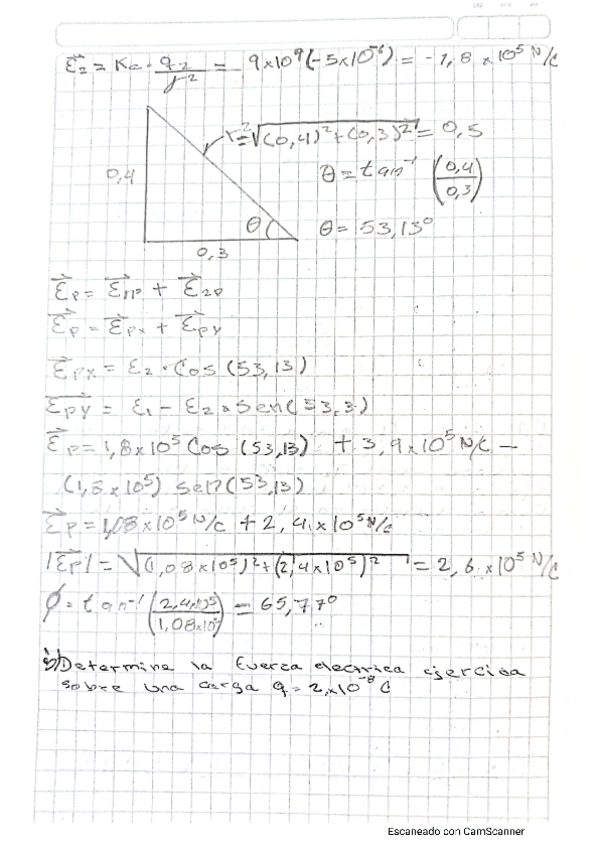 E₂ = Ke · q₂/r² = 9x10⁹(-5x10⁻⁶) = -1,8 x 10⁵ N/c
r² = √(0,4)²+(0,3)² = 0,5
0,4
θ = tan⁻¹ (0,4/0,3)
θ
θ = 53,13°
0,3
Ep = E1p + E2p
Ep = Epx + Epy
Epx = E₂ · Cos (53,13)
Epy = E₁ - E₂ · Sen( 53,3)
Ep = 1,8x10⁵ Cos (53,13) + 3,9x10⁵ N/c -
(1,8 x 10⁵) sen(53,13)
Ep = 1,08 x10⁵ N/c + 2,4 x10⁵ N/c
|Ep| = √(1,08x10⁵)²+(2,4x10⁵)² = 2,6 x10⁵ N/c
Ø = tan⁻¹ (2,4x10⁵/1,08x10⁵) = 65,77°
b) Determine la fuerza electrica ejercida
sobre una carga q = 2x10⁻⁸ C
Escaneado con CamScanner